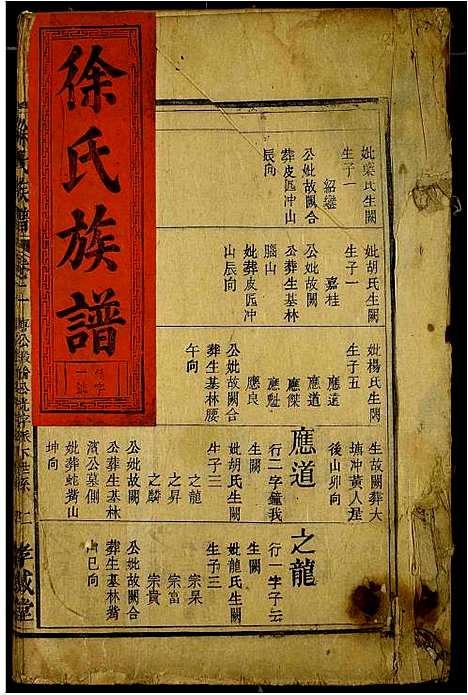 徐氏族譜
妣葉氏生闕
生子一
紹鑾
公妣故闕合
葬皮匹冲山
辰向
妣胡氏生闕
生子一
嘉桂
公妣故闕
公葬生基林
腦山
妣葬皮匹冲
山辰向
妣楊氏生闕
生子五
應道
應道
應傑
應魁
應良
公妣故闕合
葬生基林腰
午向
生故闕葬大
塘冲黃人是
後山卯向
應道
行二字鐘我
生闕
妣胡氏生闕
生子三
之龍
之昇
之麟
公妣故闕
公葬生基林
濱公墓側
妣葬蛇嘴山
坤向
之龍
行一字子云
生闕
妣龍氏生闕
生子三
宗杲
宗富
宗貴
公妣故闕合
葬生基林嘴
山巳向
孝誠堂